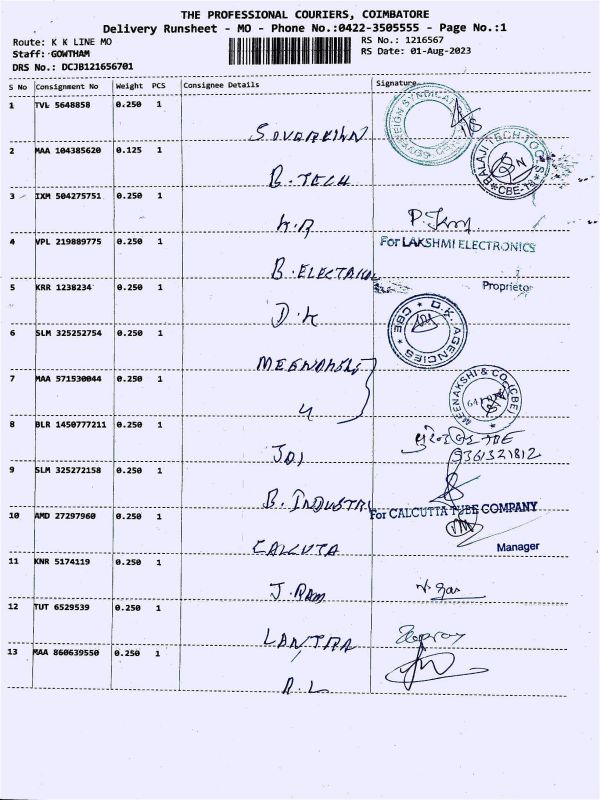 THE PROFESSIONAL COURIERS, COIMBATORE
Delivery Runsheet - MO - Phone No.:0422-3505555 - Page No.:1
Route: K K LINE MO
RS No.: 1216567
Staff: GOWTHAM
RS Date: 01-Aug-2023
DRS No.: DCJB121656701
S No Consignment No Weight PCS Consignee Details Signature
1 TVL 5648858 0.250 1
2 MAA 104385620 0.125 1
BALAJI TECH CBE
B. TECH
3 IXM 504275751 0.250 1
K.R
4 VPL 219889775 0.250 1
For LAKSHMI ELECTRONICS
B. ELECTRICAL
5 KRR 1238234 0.250 1
Proprietor
D.K
D.K. AGENCIES * CBE *
6 SLM 325252754 0.250 1
7 MAA 571530044 0.250 1
MEENAKSHI & CO (CBE)
8 BLR 1450777211 0.250 1
JAI
9 SLM 325272158 0.250 1
B. INDUSTRI
For CALCUTTA TUBE COMPANY
10 AMD 27297960 0.250 1
CALCUTA
Manager
11 KNR 5174119 0.250 1
J. RAM
12 TUT 6529539 0.250 1
13 MAA 860639550 0.250 1